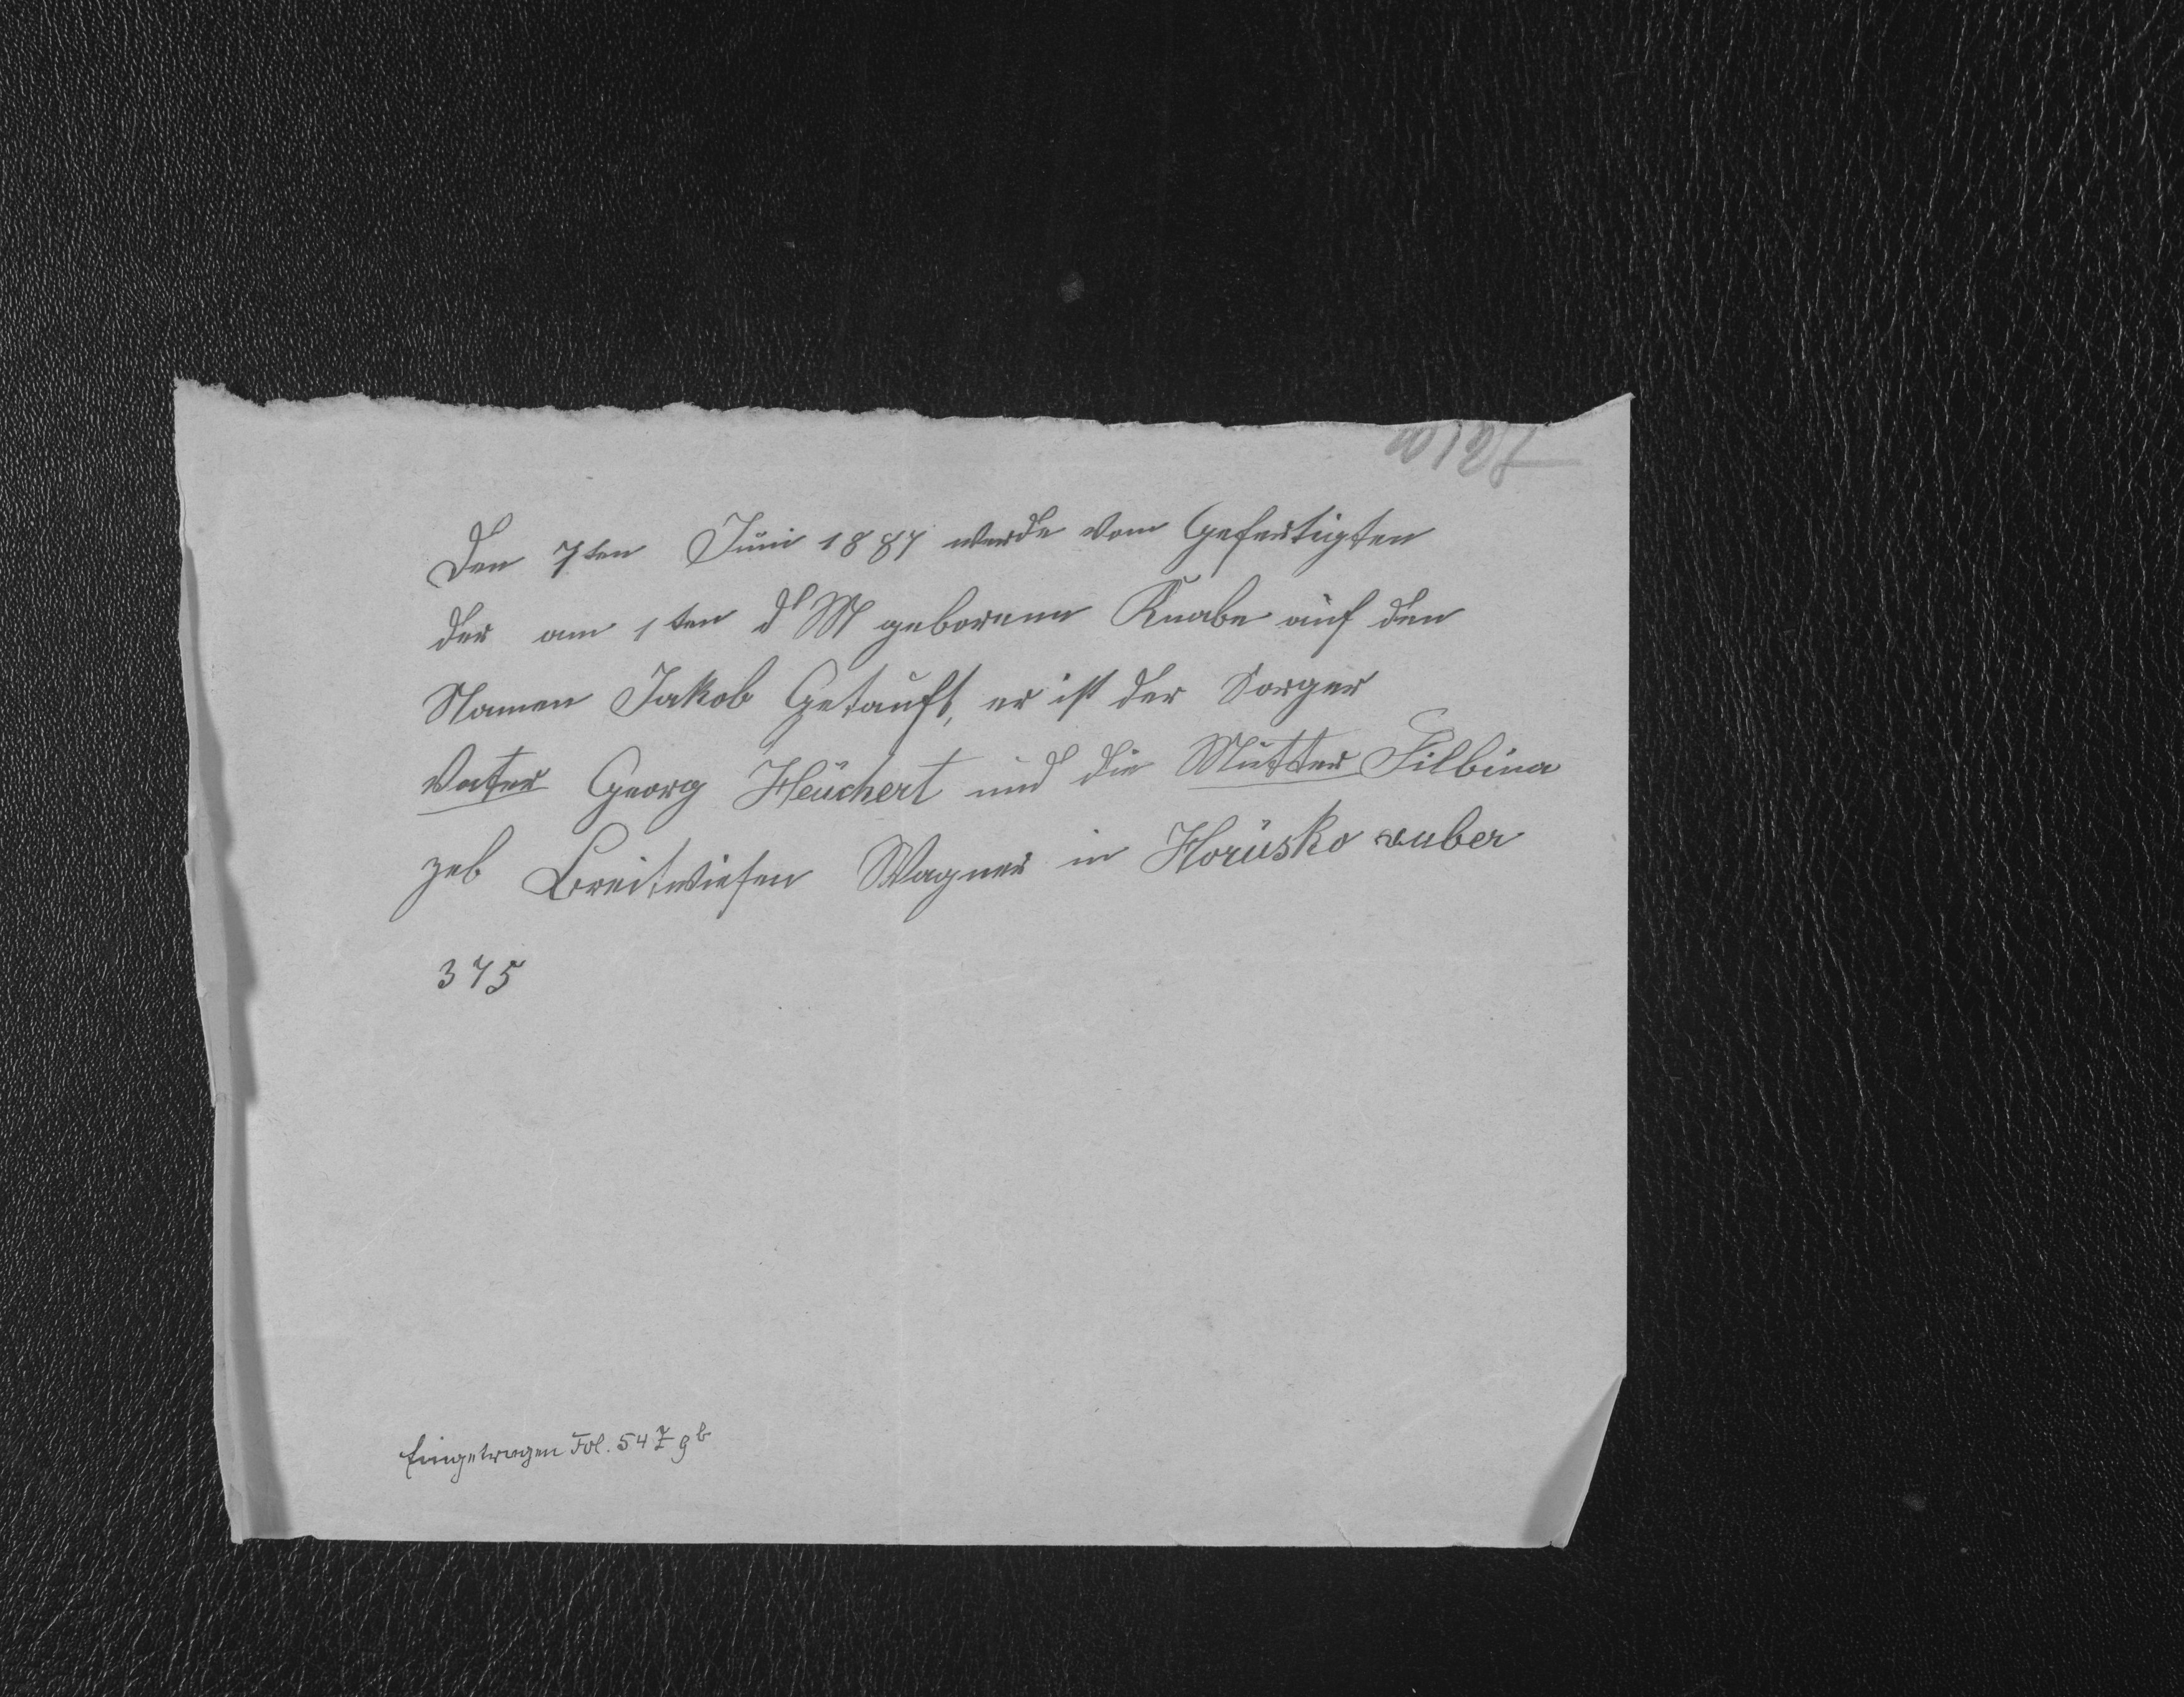 Den 7ten Juni 1887 wurde vom Gefertigten
der am 1ten d M geborenn Knabe auf den
Namen Jakob Getauft, er ist der
Vater Georg Heüchert und die Mutter Filbina
geb Breitwiesen Wagner in Horüsko
375
Eingetragen Fol. 54